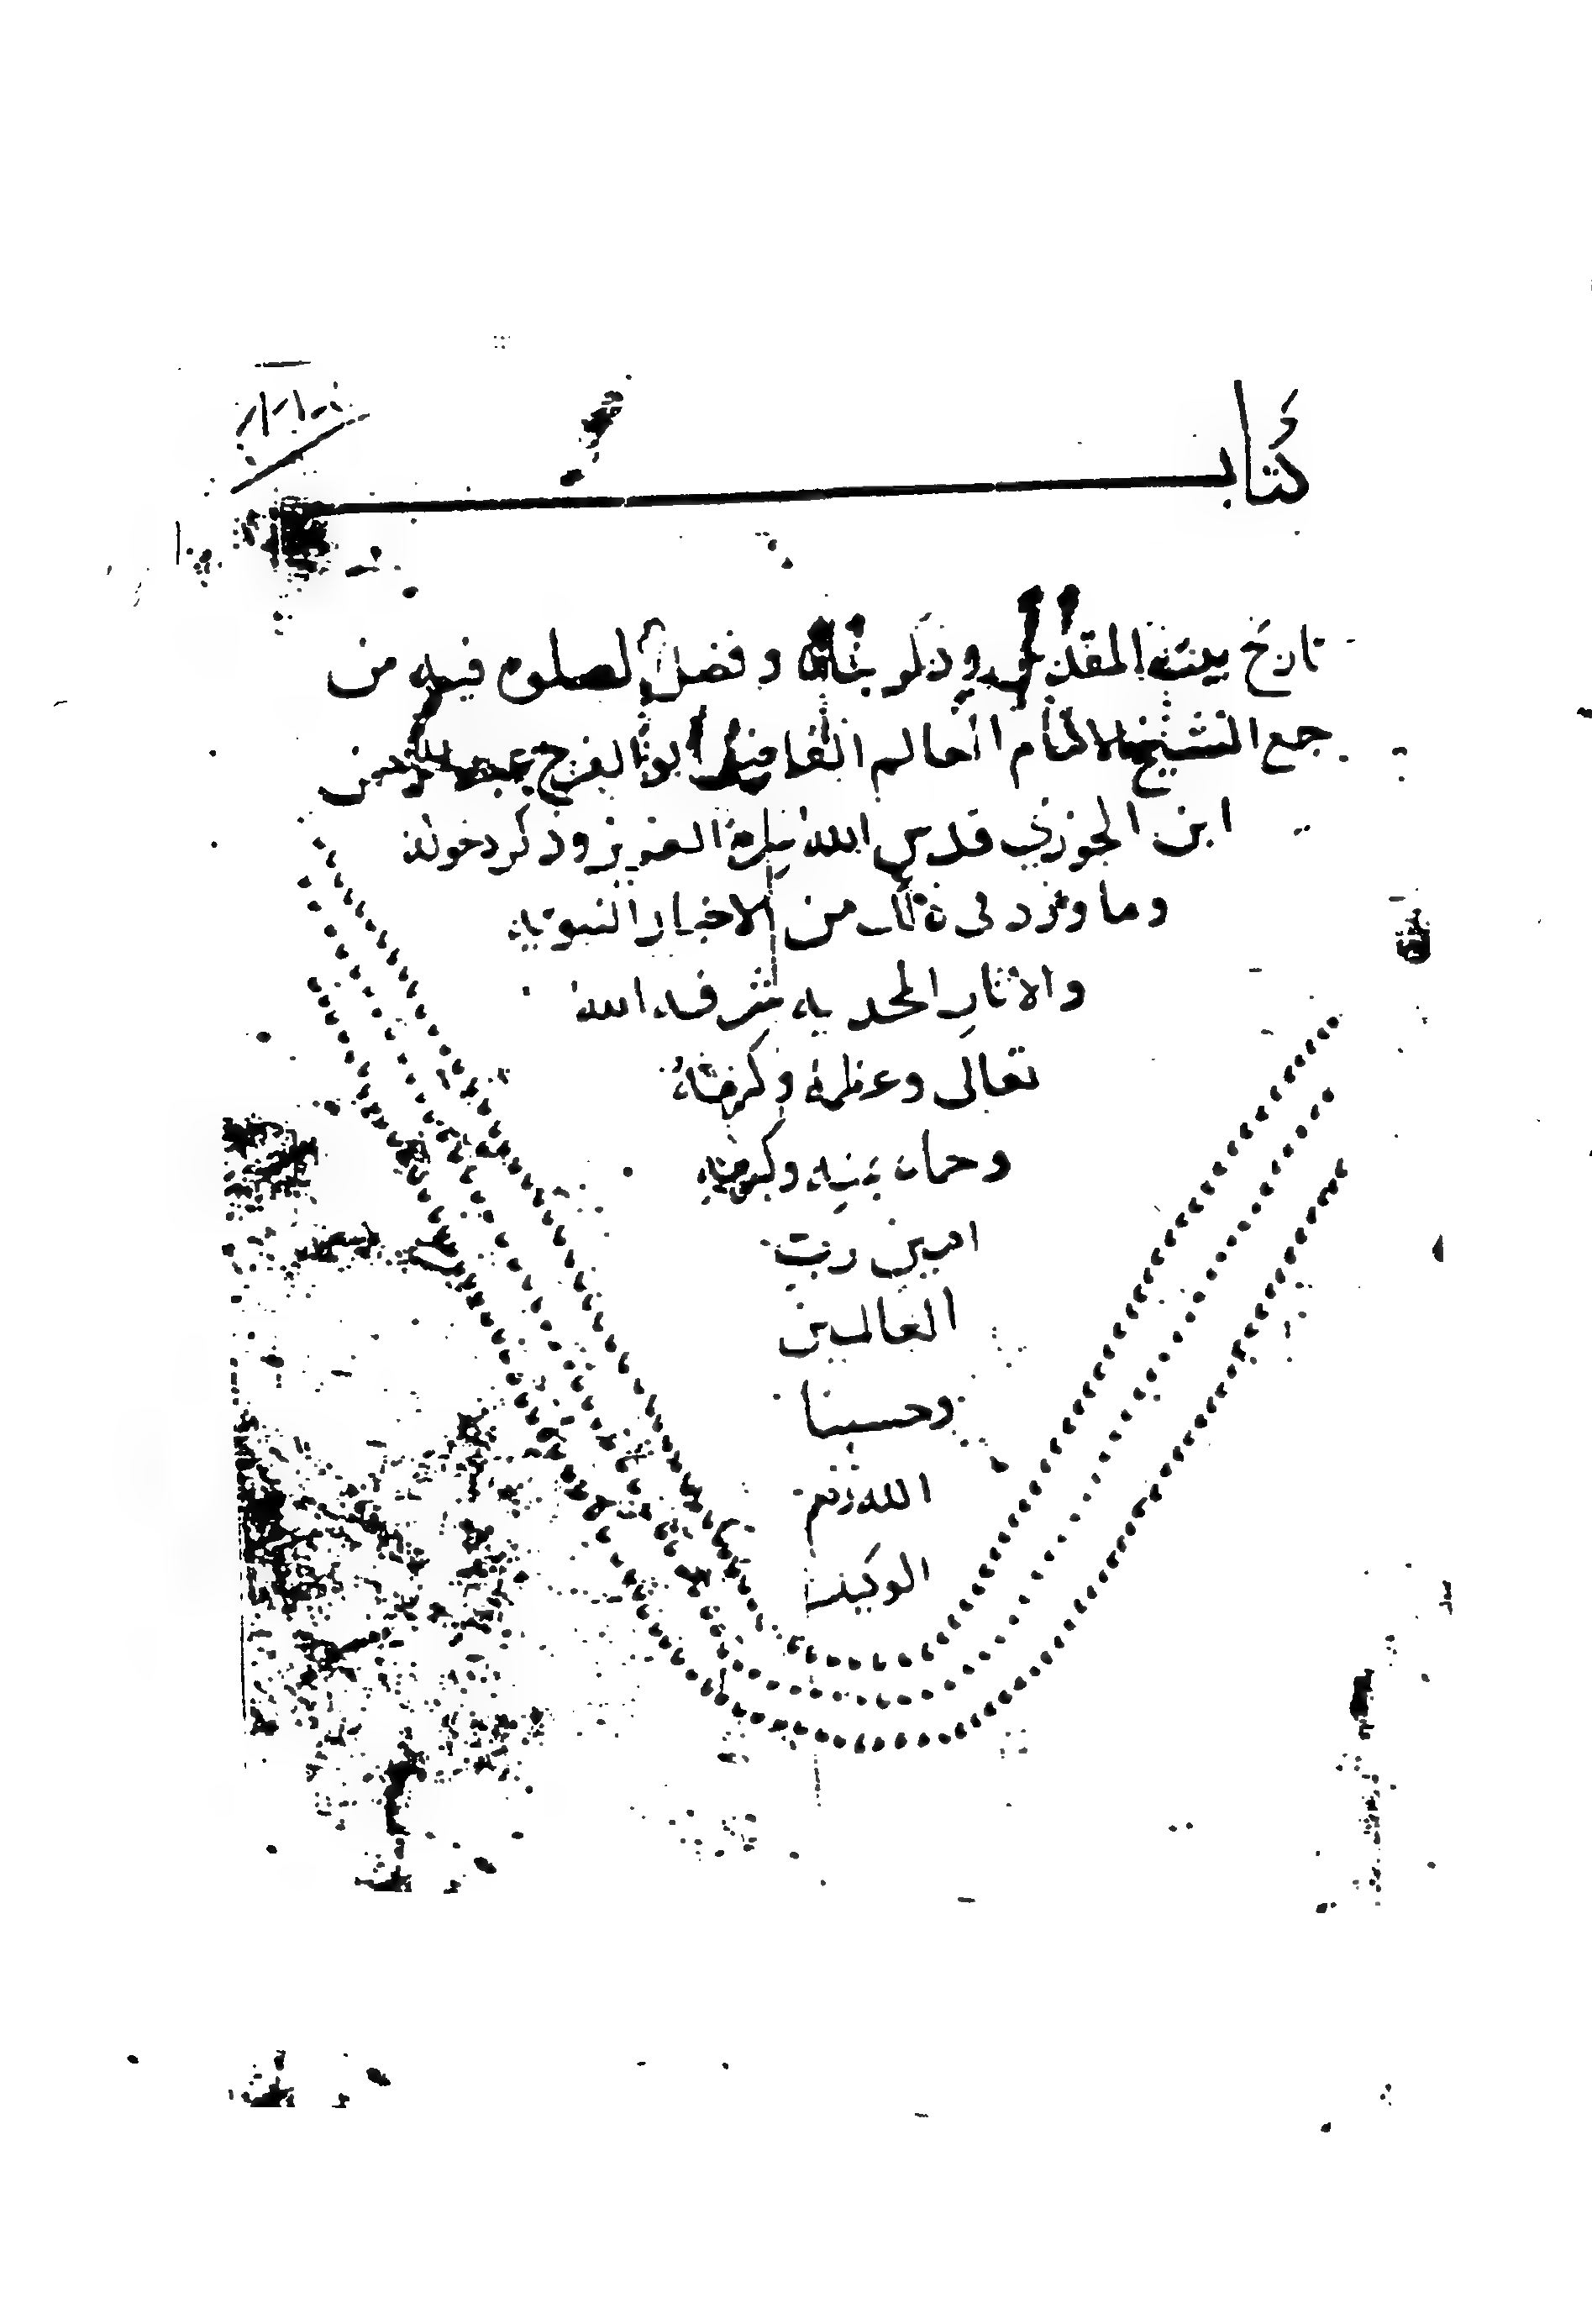 كتاب
تاريخ بيت المقدس وذكر بنائه وفضل الصلوه فيه من
جمع الشيخ الامام العالم الفاضل ابو الفرج عبد الرحمن
ابن الجوزي قدس الله سره العزيز وذكر
وما ورد في ذلك من الاخبار النبويه
والاثار المحمديه شرفه الله
تعالى وعظمه وكرمه
وحماه بمنه وكرمه
امين رب
العالمين
وحسبنا
الله ونعم
الوكيل